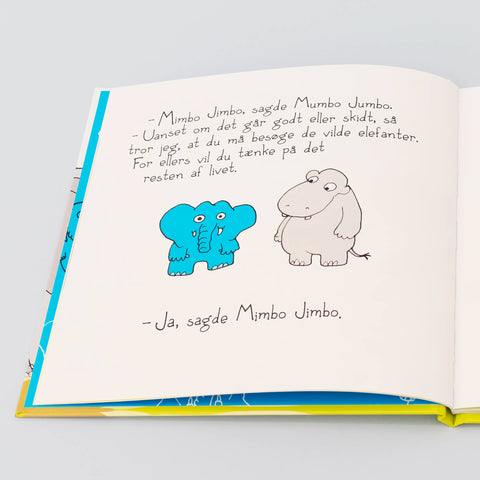 - Mimbo Jimbo, sagde Mumbo Jumbo.
- Uanset om det går godt eller skidt, så
tror jeg, at du må besøge de vilde elefanter.
For ellers vil du tænke på det
resten af livet.
- Ja, sagde Mimbo Jimbo.